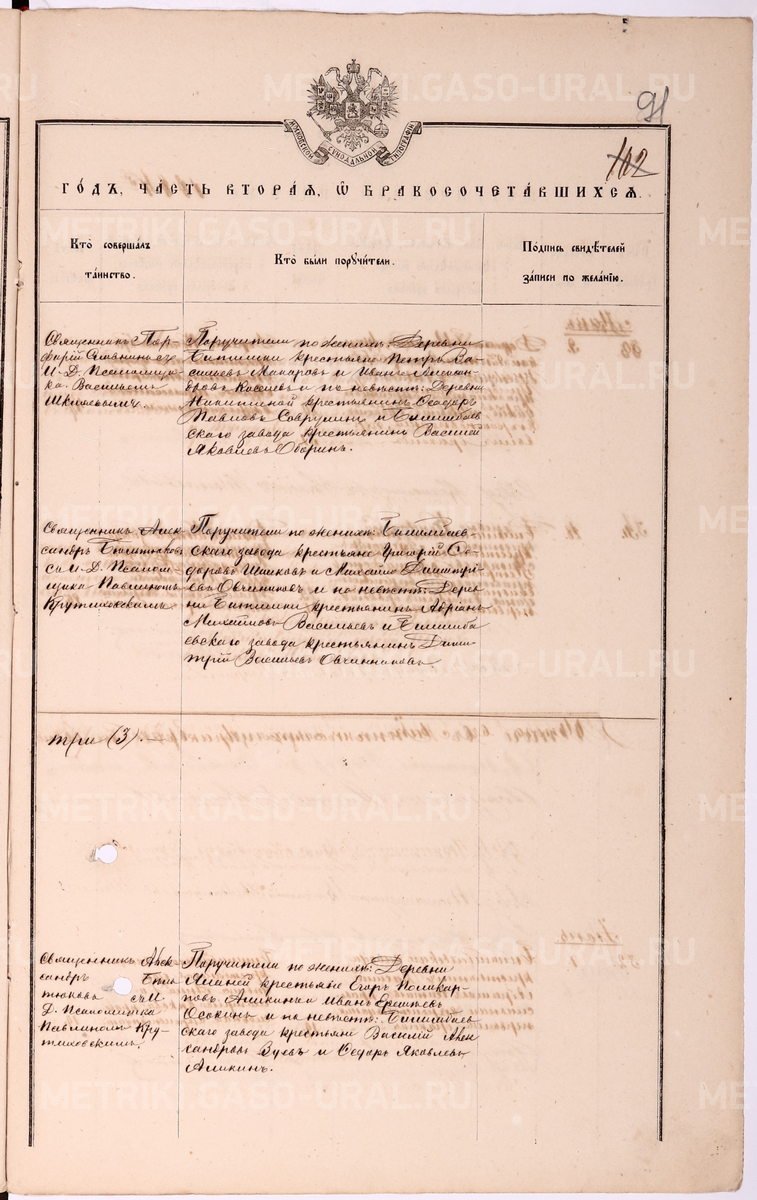 91
112
МОСКОВСКОЙ СѴНОДАЛЬНОЙ ТИПОГРАФІИ
ГОДЪ, ЧАСТЬ ВТОРАЯ, Ѿ БРАКОСОЧЕТАВШИХСЯ.
Кто совершалъ таинство.
Кто были поручители.
Подпись свидѣтелей записи по желанію.
Священникъ Пор-
фирій Славнинъ съ
И. Д. Псаломщи-
ка Васильемъ
Поручители по женихѣ: Деревни
Битимки крестьяне Петръ Ва-
сильевъ Макаровъ и Иванъ Алексан-
дровъ и по невѣстѣ: Деревни
Никитиной крестьянинъ Ѳеодоръ
Павловъ и Билимбаев-
скаго завода крестьянинъ Василій
Яковлевъ Оборинъ.
Священникъ Алек-
сандръ
съ И. Д. Псалом-
щика Павлиномъ
Крутиховскимъ
Поручители по женихѣ: Билимбаев-
скаго завода крестьяне Григорій Се-
доровъ и Михаило Димитрі-
евъ Овчинниковъ и по невѣстѣ: Дерев-
ни Битимки крестьянинъ Адріанъ
Михайловъ Васильевъ и Билимба-
евскаго завода крестьянинъ Дими-
трій Васильевъ Овчинниковъ
три (3).—
Священникъ Алек-
сандръ
съ И.
Д. Псаломщика
Павлиномъ Кру-
тиховскимъ.
Поручители по женихѣ: Деревни
крестьяне Егоръ Поликар-
повъ Аликинъ и Иванъ
Осокинъ и по невѣстѣ: Билимбаев-
скаго завода крестьяне Василій Алек-
сандровъ и Ѳедоръ Яковлевъ
Аликинъ.
METRIKI.GASO-URAL.RU